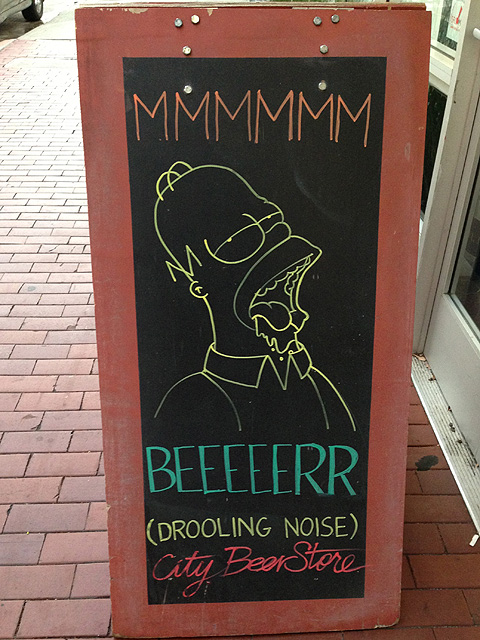 MMMMMM
BEEEEERR
(DROOLING NOISE)
City Beer Store